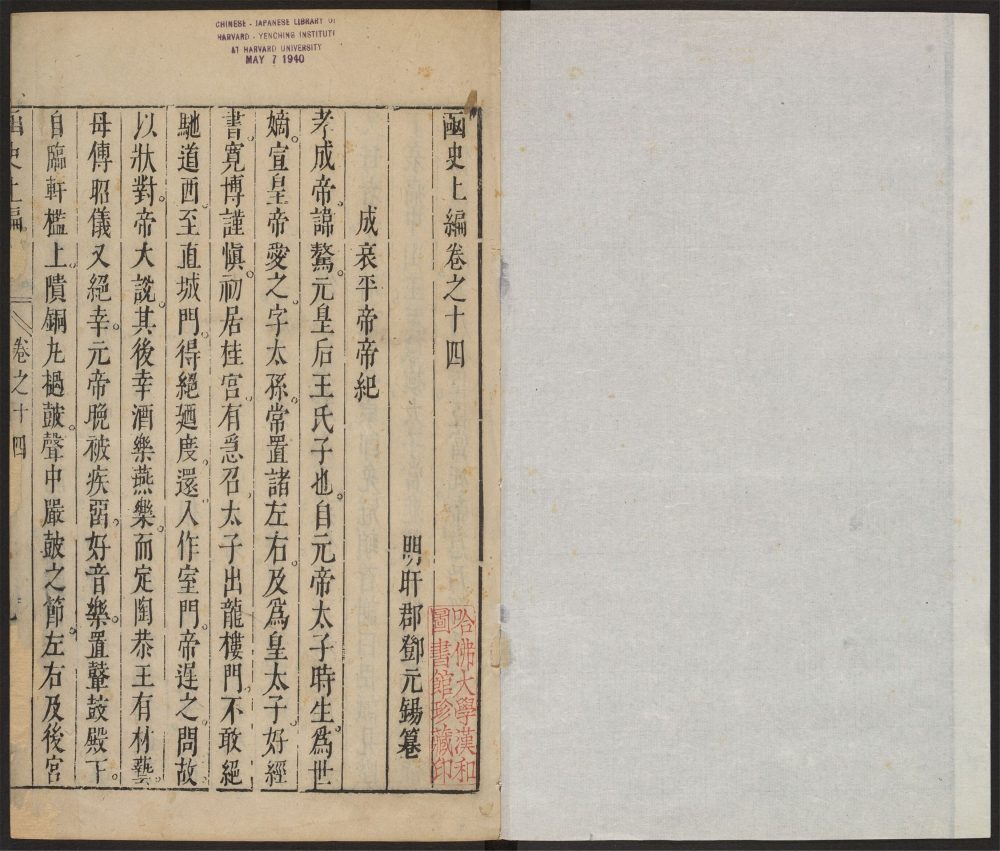 CHINESE - JAPANESE LIBRARY OF
HARVARD - YENCHING INSTITUTE
AT HARVARD UNIVERSITY
MAY 7 1940
函史上編卷之十四
明盱郡鄧元錫纂
成哀平帝帝紀
孝成帝諱驁。元皇后王氏子也。自元帝太子時生。爲世
嫡。宣皇帝愛之。字太孫。常置諸左右。及爲皇太子。好經
書。寛博謹愼。初居桂宮。有急召。太子出龍樓門。不敢絕
馳道西。至直城門。得絕廼度。還入作室門。帝遲之。問故
以狀對。帝大說。其後幸酒樂燕樂。而定陶恭王有材藝。
母傅昭儀又絕幸。元帝晩被疾。畱好音樂。置鼙鼓殿下。
自臨軒檻上。隤銅丸擿鼓。聲中嚴鼓之節。左右及後宮
函史上編
卷之十四
哈佛大學漢和
圖書館珍藏印